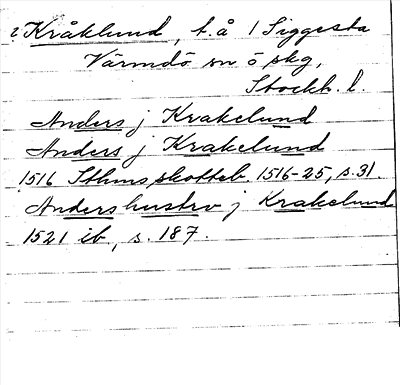 ? Kråklund, t.å 1 Siggesta
Värmdö sn ö skg,
Stockh. l.
Anders j Krakelund
Anders j Krakelund
1516 Sthms skotteb. 1516-25, s. 31.
Anders hustrv j Krakelund
1521 ib, s. 187.